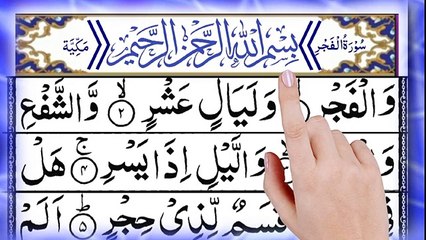 سُوْرَةُ الْفَجْرِ بِسْمِ اللّٰهِ الرَّحْمٰنِ الرَّحِيْمِ مَكِّيَّة
وَالْفَجْرِ وَلَيَالٍ عَشْرٍ ۙ﴿۲﴾ وَّالشَّفْعِ
وَالَّيْلِ اِذَا يَسْرِ ۚ﴿۴﴾ هَلْ
قَسَمٌ لِّذِیْ حِجْرٍ ؕ﴿۵﴾ اَلَمْ